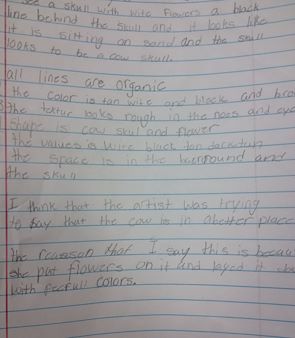 a skull with wite flowers a black
line behind the skull and it looks like
it is sitting on sand and the skull
looks to be a cow skull.
all lines are organic
the color is tan wite and black and bro
the textur looks rough in the noes and eye
shape is cow skull and flower
the values is wire black tan
the space is in the and
the skull
I think that the artist was trying
to say that the cow is in a better place
the reason that I say this is becau
she put flowers on it and layed it
with colors.